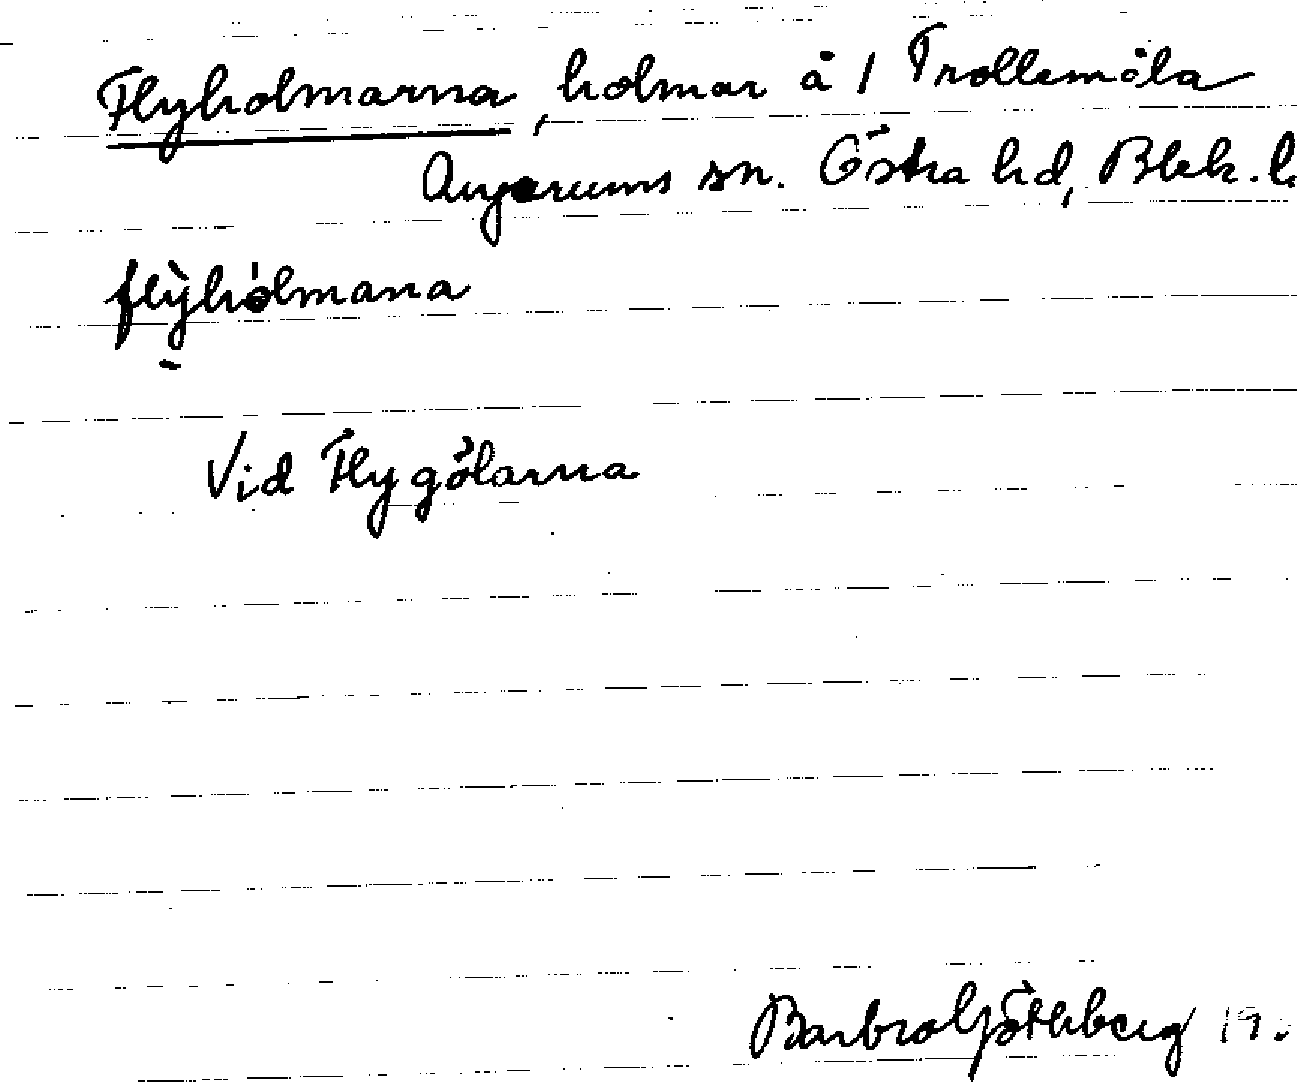 Flyholmarna, holmar å 1 Trollemåla
Augerums sn. Östra hd, Blek. l.
flỳhólmana
Vid Flygölarna
Barbro Göthberg 19